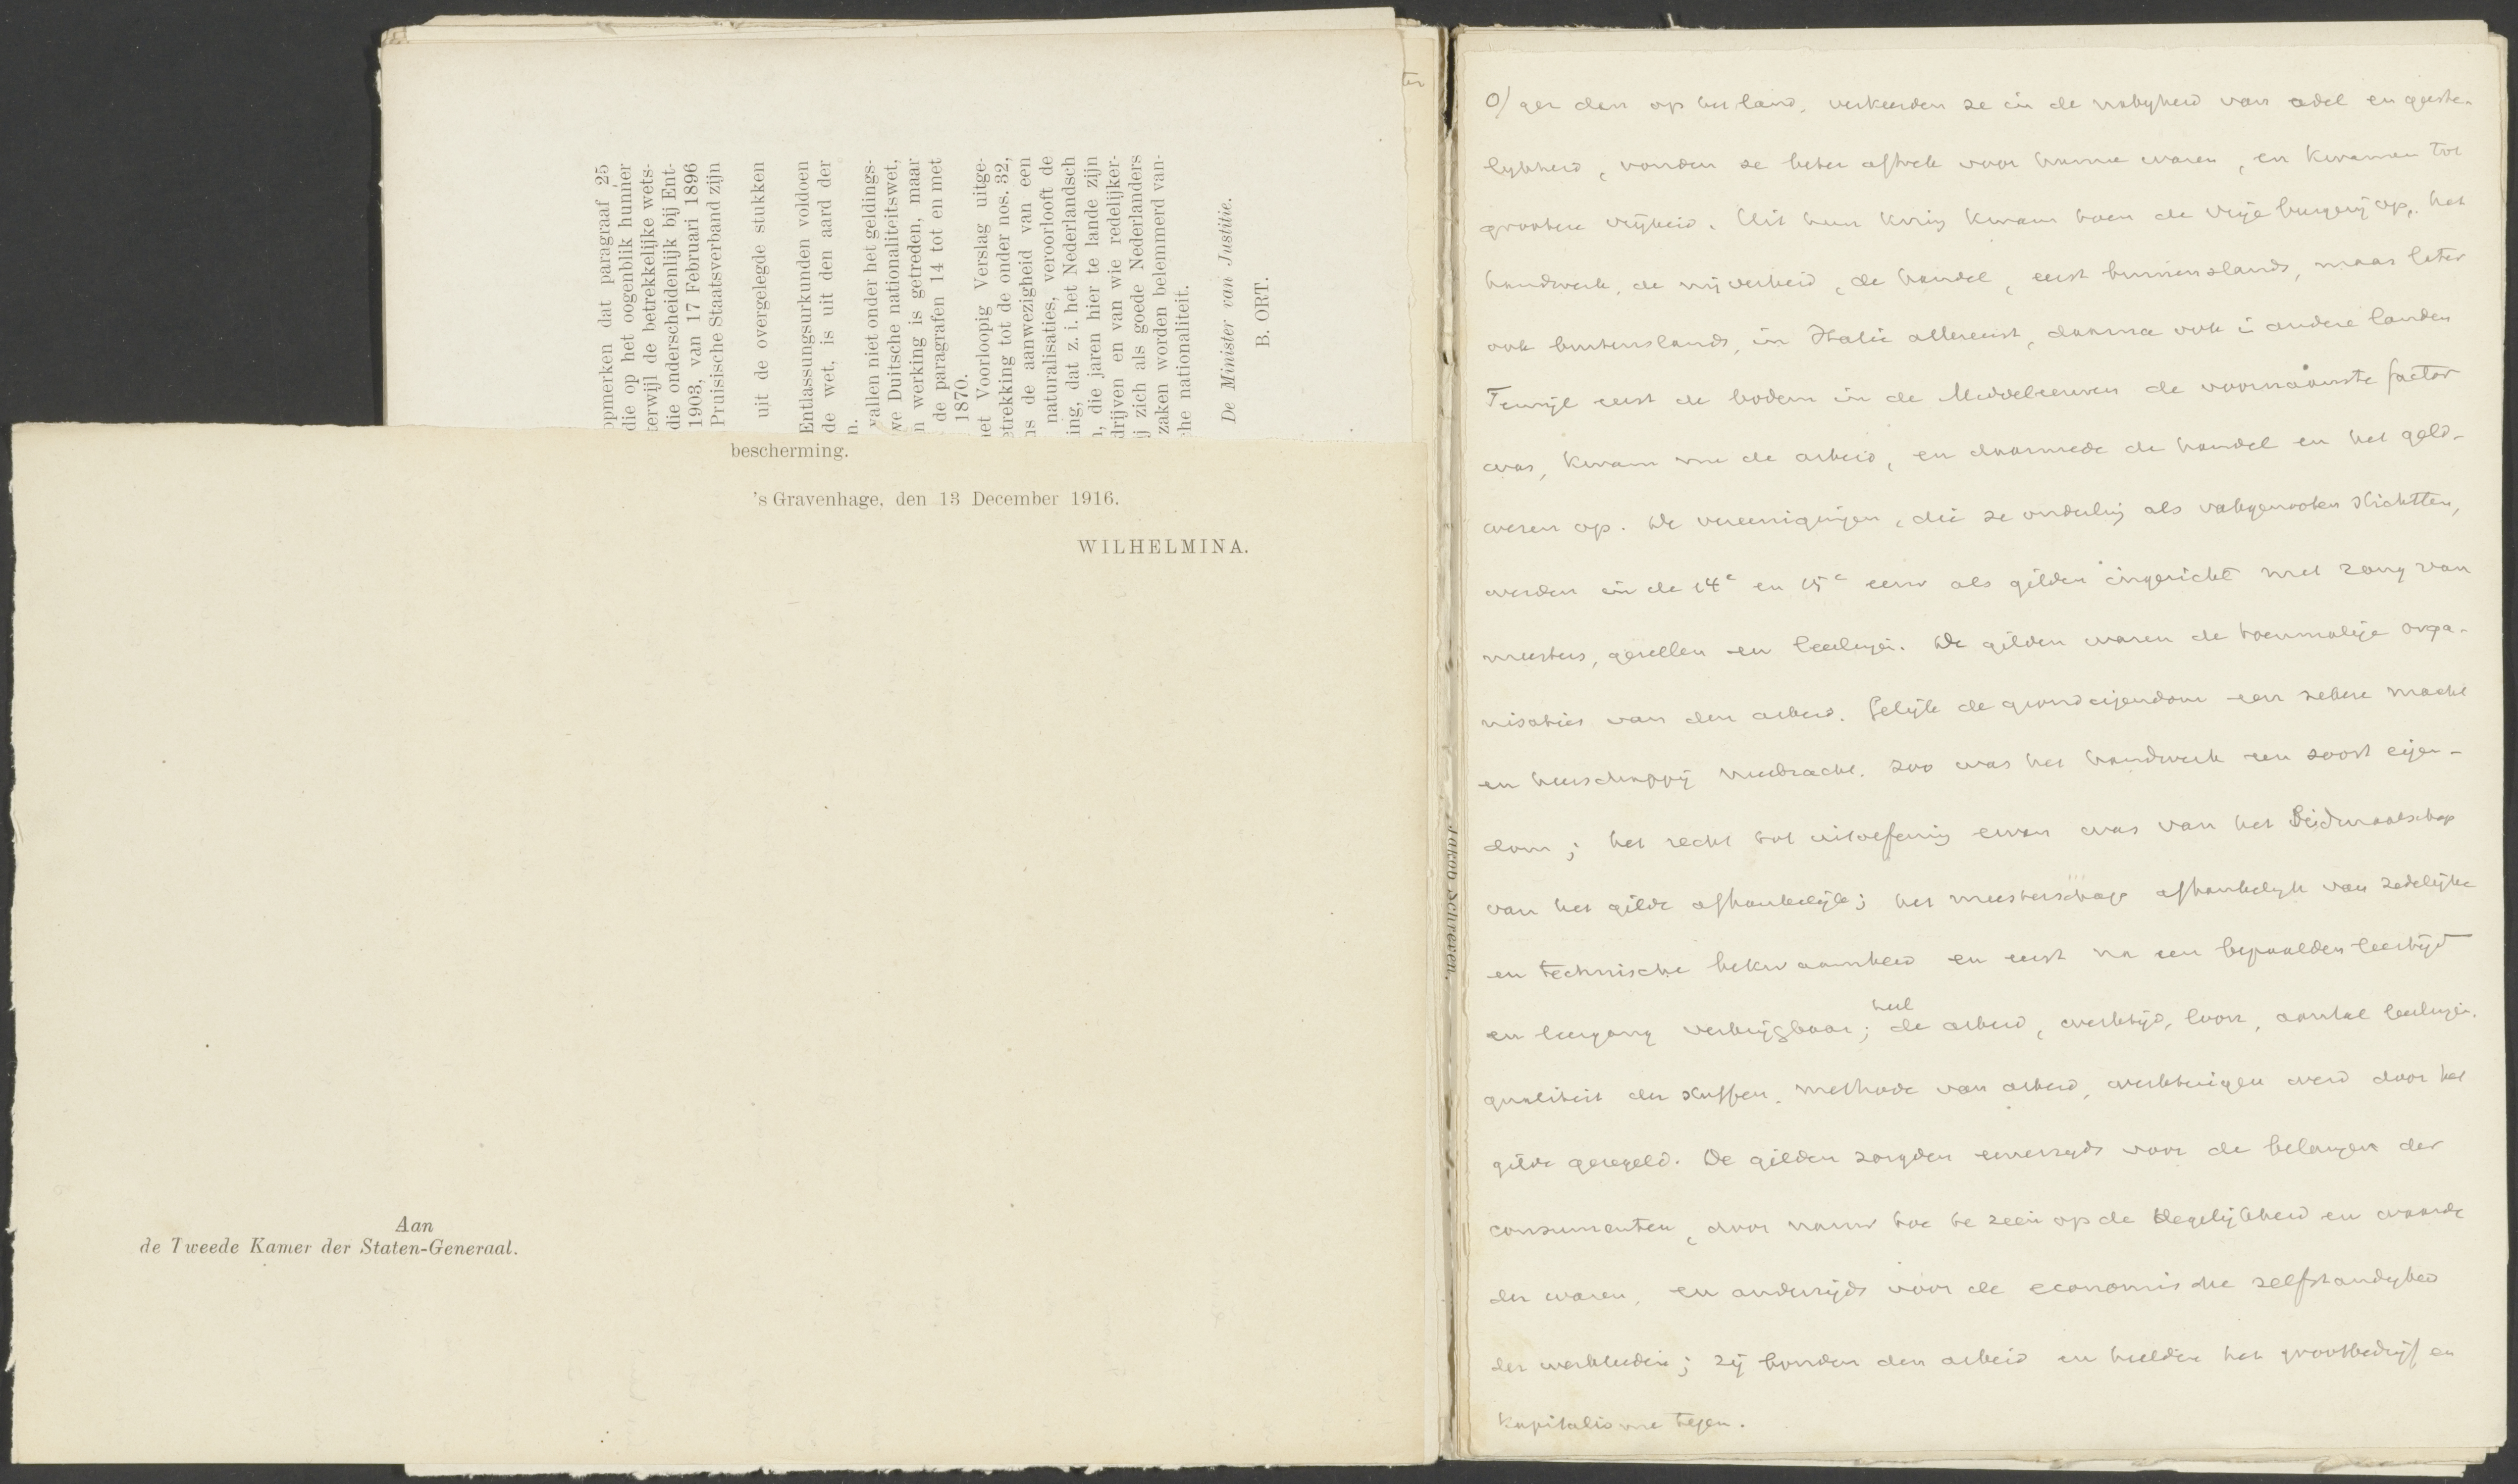 opmerken dat paragraaf 25
die op het oogenblik hunner
terwijl de betrekkelijke wets-
die onderscheidenlijk bij Ent-
1903, van 17 Februari 1896
Pruisische Staatsverband zijn
uit de overgelegde stukken
Entlassungsurkunden voldoen
de wet, is uit den aard der
n.
vallen niet onder het geldings-
we Duitsche nationaliteitswet,
n werking is getreden, maar
de paragrafen 14 tot en met
1870.
et Voorloopig Verslag uitge-
etrekking tot de onder nos. 32,
ns de aanwezigheid van een
naturalisaties, veroorlooft de
ing, dat z. i. het Nederlandsch
n, die jaren hier te lande zijn
drijven en van wie redelijker-
ij zich als goede Nederlanders
zaken worden belemmerd van-
che nationaliteit.
De Minister van Justitie.
B. ORT.
bescherming.
's Gravenhage, den 13 December 1916.
WILHELMINA.
Aan
de Tweede Kamer der Staten-Generaal.
ter
Jakob Schreeen.
O/ ger dan op het land, verkeerden ze in de nabyheid van adel en geeste-
lykheid, vonden ze beter aftrek voor hunne waren, en kwamen tot
grootere vrijheid. Uit hun kring kwam toen de vrije burgerij op, het
handwerk, de nijverheid, de handel, eerst binnenslands, maar later
ook buitenslands, in Italië allereerst, daarna ook i andere landen
Terwijl eerst de bodem in de Middeleeuwen de voornaamste factor
was, kwam nu de arbeid, en daarmede de handel en het geld-
wezen op. De vereenigingen, die ze onderling als vakgenooten stichtten,
werden in de 14e en 15e eeuw als gilden ingericht met rang van
meesters, gezellen en leerlingen. De gilden waren de toenmalige orga-
nisaties van den arbeid. Gelijk de grondeigendom een zekere macht
en heerschappij meebracht, zoo was het handwerk een soort eigen-
dom; het recht tot uitoefening ervan was van het Lidmaatschap
van het gilde afhankelijk; het meesterschap afhankelyk van zedelijke
en technische bekwaamheid en eerst na een bepaalden leertijd
en leergang verkrijgbaar; heel de arbeid, werktijd, loon, aantal leerlingen,
qualiteit der stoffen, methode van arbeid, werktuigen werd door het
gilde geregeld. De gilden zorgden eenerzyds voor de belangen der
consumenten, door nauw toe te zien op de degelijkheid en waarde
der waren, en anderzijds voor de economische zelfstandigheid
der werklieden; zij bonden den arbeid en hielden het grootbedrijf en
kapitalisme tegen.